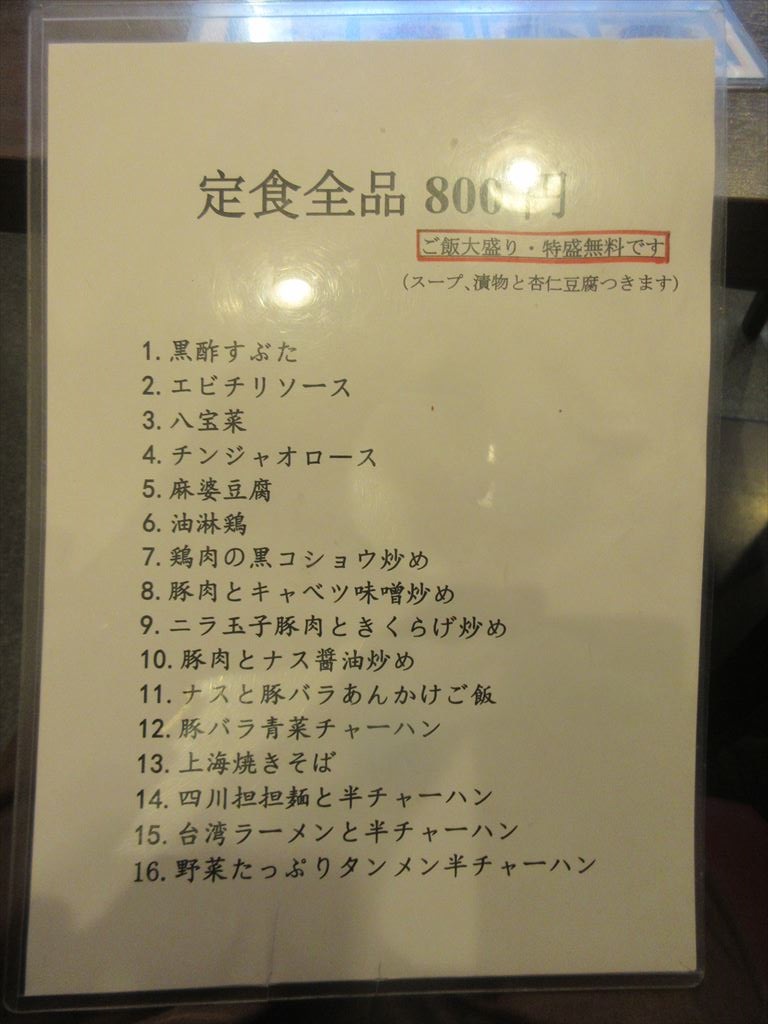 定食全品 800 円
ご飯大盛り・特盛無料です
(スープ、漬物と杏仁豆腐つきます)
1. 黒酢すぶた
2. エビチリソース
3. 八宝菜
4. チンジャオロース
5. 麻婆豆腐
6. 油淋鶏
7. 鶏肉の黒コショウ炒め
8. 豚肉とキャベツ味噌炒め
9. ニラ玉子豚肉ときくらげ炒め
10. 豚肉とナス醤油炒め
11. ナスと豚バラあんかけご飯
12. 豚バラ青菜チャーハン
13. 上海焼きそば
14. 四川担担麺と半チャーハン
15. 台湾ラーメンと半チャーハン
16. 野菜たっぷりタンメン半チャーハン